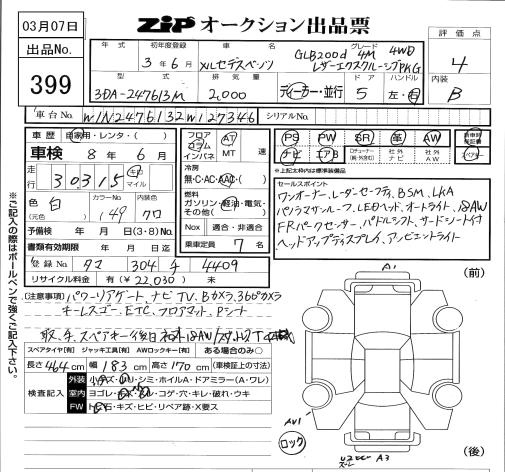 03月07日
出品No.
399
ZIP オークション出品票
評価点
4
内装
B
年式 初年度登録 車名 グレード
3年6月 メルセデスベンツ GLB200d 4M 4WD レザーエクスクルーシブPKG
型式 排気量 ドア ハンドル
3DA-247613M 2,000 ディーラー・並行 5 左・右
車台No. W1N2476132W127346 シリアルNo.
車歴 自家用・レンタ( )
車検 8年6月
走行 30315 キロ マイル
色(元色) 白 カラーNo. 149 クロ
予備検 年 月 日(3・8)No.
書類有効期限 年 月 日迄
登録No. タマ 304 チ 4409
リサイクル料金 有(¥22,030)無
フロア コラム インパネ AT MT 速
冷房 無・C・AC・AAC・( )
燃料 ガソリン・軽油・電気・その他( )
Nox 適合・非適合
乗車定員 7名
PS PW SR 革 AW
ナビ エアB 社外ナビ 社外AW スペアキー
*上記枠内は標準装備品
セールスポイント
ワンオーナー、レーダーセーフティ、BSM、LKA
パノラマルーフ、LEDヘッド、オートライト、18AW
FRパークセンサー、パドルシフト、サードシート付
ヘッドアップディスプレイ、アンビエントライト
※ご記入の際はボールペンで強くご記入下さい。
(注意事項) パワーリアゲート、ナビTV、Bカメラ、360°カメラ
キーレスゴー、ETC、フロアマット、Pシート
取、手、スペアキー後日
スペアタイヤ[有] ジャッキ工具[有] AWロックキー[有] ある場合のみ○
長さ464cm 幅183cm 高さ170cm (車検証上の寸法)
検査記入
外装 小キズ・小U・シミ・ホイルA・ドアミラー(A・ワレ)
室内 ヨゴレ・コゲ穴・キレ・破れ・ウキ
FW 飛石・キズ・ヒビ・リペア跡・X要ス
A1
(前)
AU1
ロック
A3
(後)